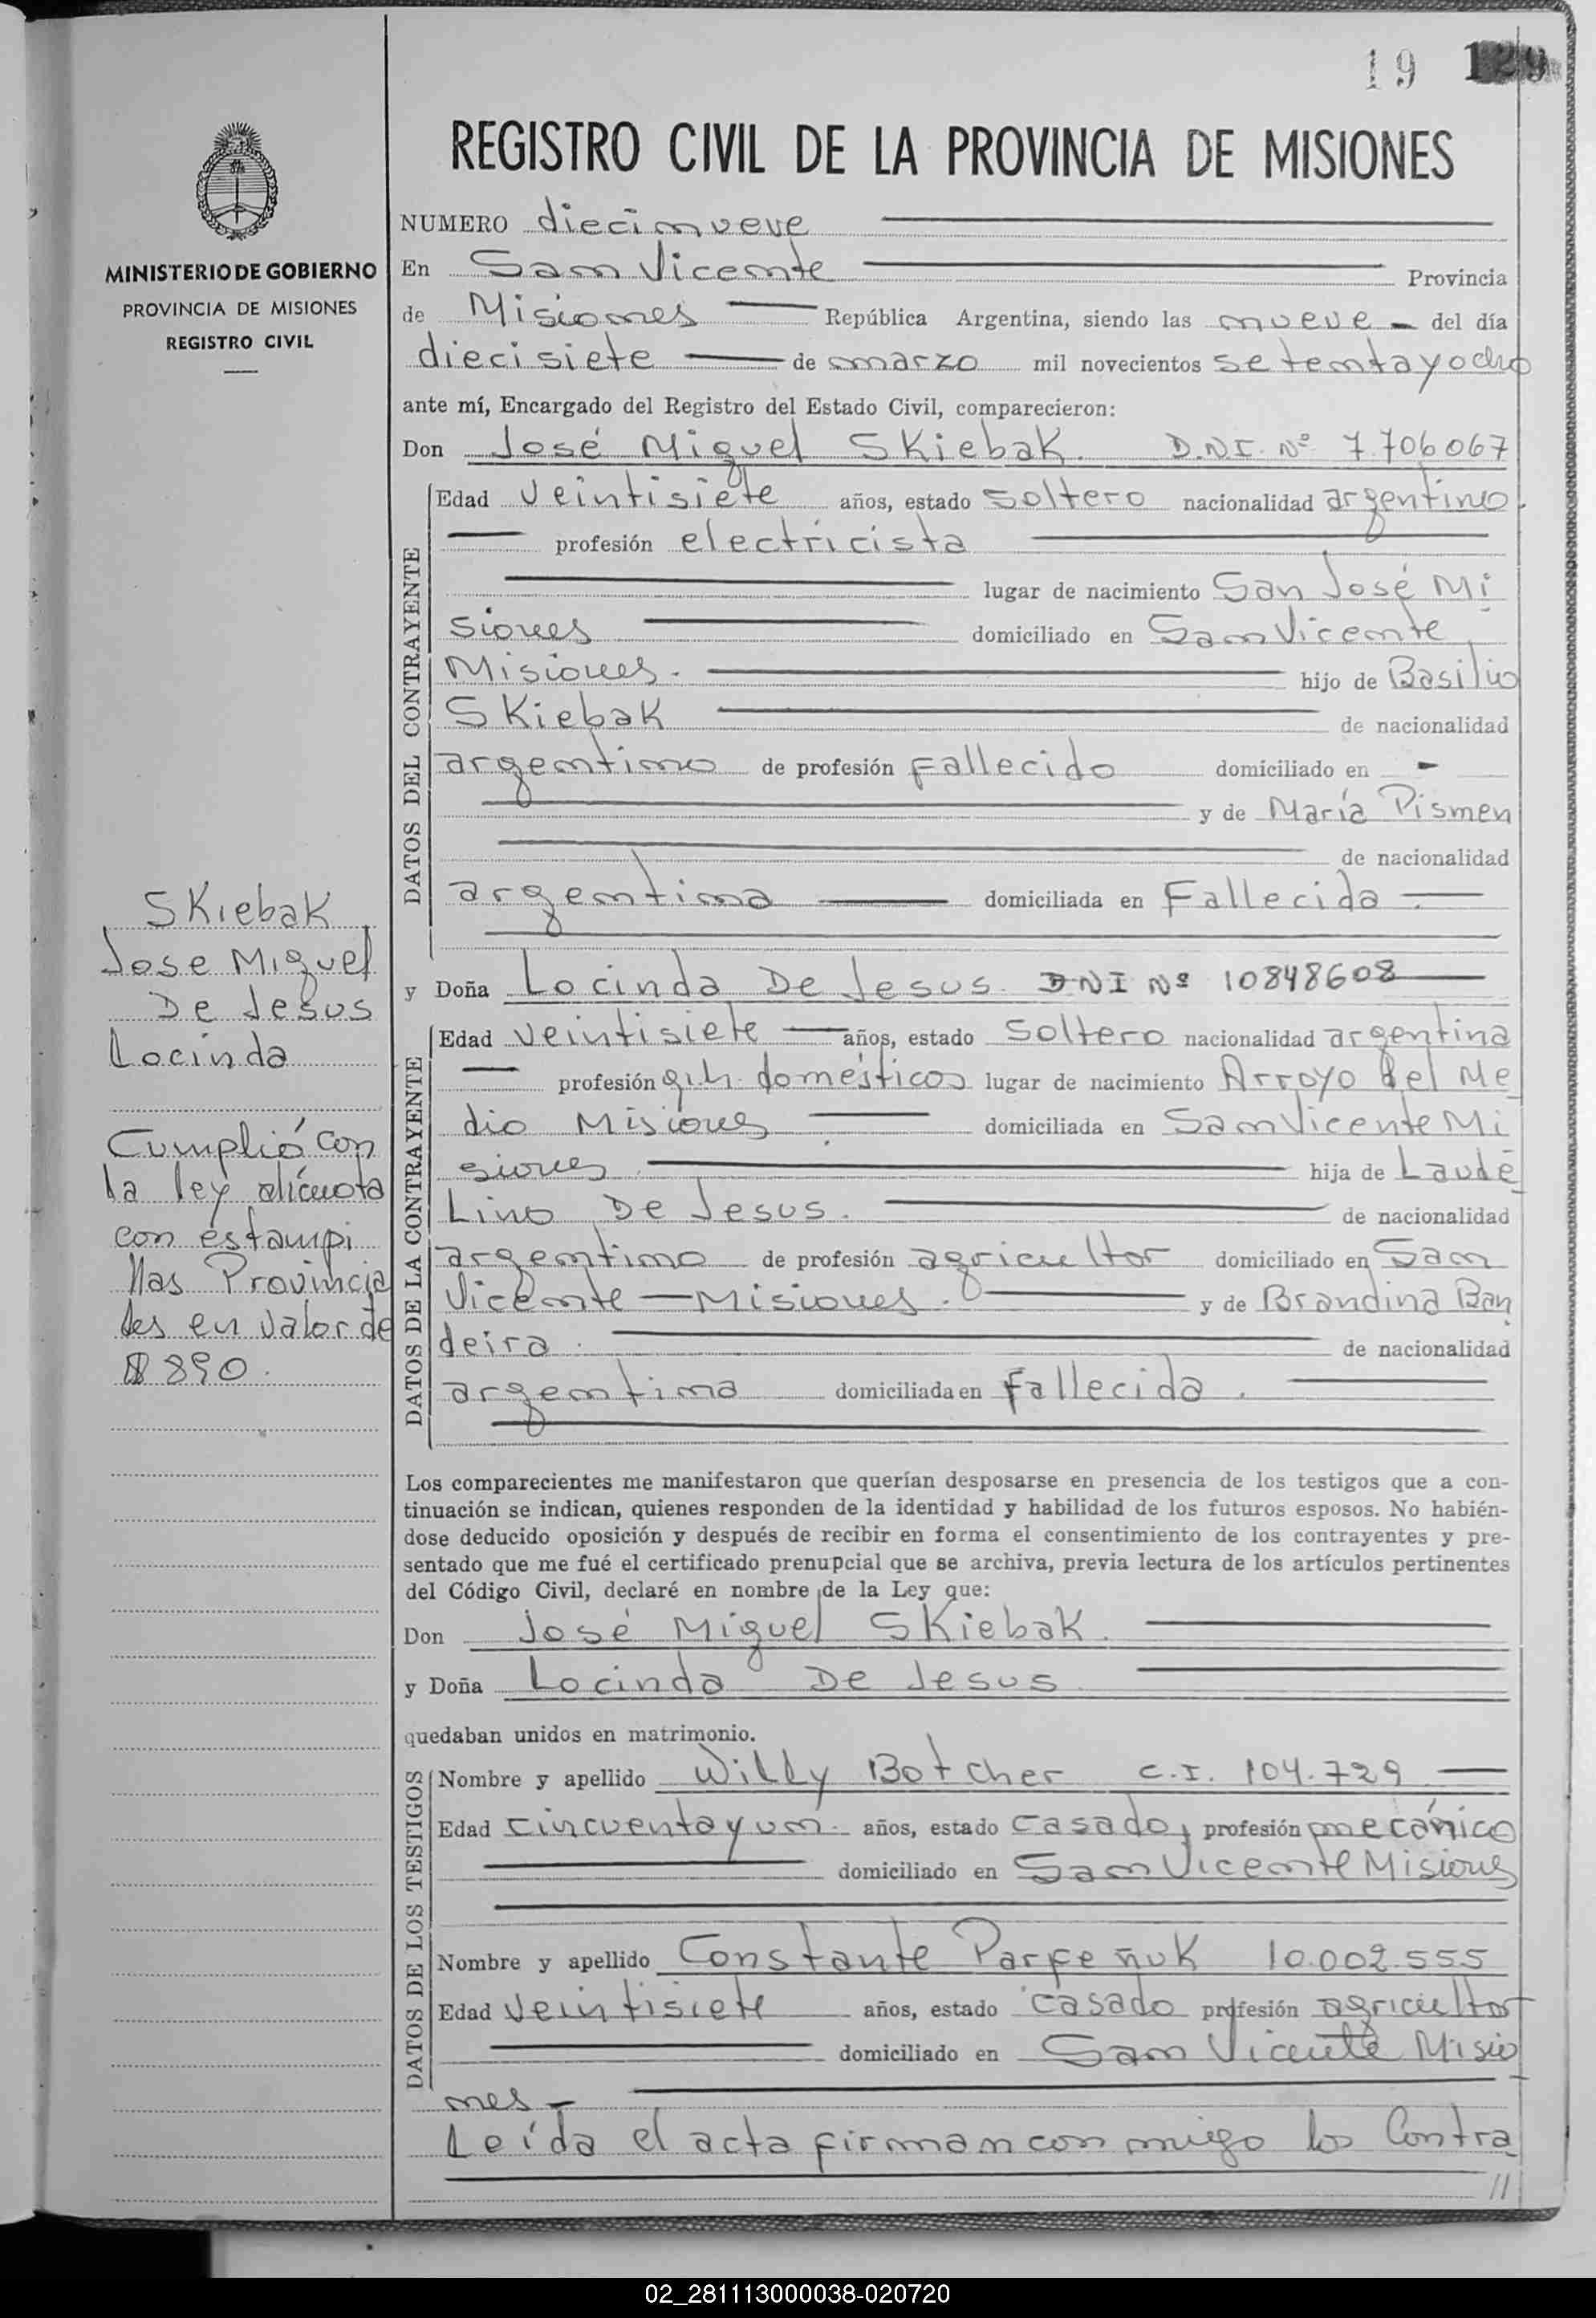 19 129
REGISTRO CIVIL DE LA PROVINCIA DE MISIONES
MINISTERIO DE GOBIERNO
PROVINCIA DE MISIONES
REGISTRO CIVIL
NUMERO diecinueve
En San Vicente Provincia
de Misiones República Argentina, siendo las nueve - del día
diecisiete de marzo mil novecientos setentayocho
ante mí, Encargado del Registro del Estado Civil, comparecieron:
Don José Miguel SKiebaK. D.N.I. Nº 7.706067
DATOS DEL CONTRAYENTE
Edad veintisiete años, estado soltero nacionalidad argentino.
profesión electricista
lugar de nacimiento San José Mi
siones domiciliado en San Vicente,
Misiones. hijo de Basilio
SKiebaK de nacionalidad
argentino de profesión Fallecido domiciliado en -
y de María Pismen
de nacionalidad
argentina domiciliada en Fallecida.
y Doña Locinda De Jesus. DNI Nº 10848608
DATOS DE LA CONTRAYENTE
Edad veintisiete años, estado soltero nacionalidad argentina
profesión q.h. domésticos lugar de nacimiento Arroyo del Me
dio Misiones. domiciliada en San Vicente Mi
siones hija de Laudé
Lino De Jesus. de nacionalidad
argentino de profesión agricultor domiciliado en San
Vicente - Misiones. y de Brandina Ban
deira. de nacionalidad
argentina domiciliada en Fallecida.
SKiebaK
Jose Miguel
De Jesus
Locinda
Cumplió con
la ley alícuota
con estampi
llas Provincia
les en valor de
$ 890.
Los comparecientes me manifestaron que querían desposarse en presencia de los testigos que a con-
tinuación se indican, quienes responden de la identidad y habilidad de los futuros esposos. No habién-
dose deducido oposición y después de recibir en forma el consentimiento de los contrayentes y pre-
sentado que me fué el certificado prenupcial que se archiva, previa lectura de los artículos pertinentes
del Código Civil, declaré en nombre de la Ley que:
Don José Miguel SKiebaK.
y Doña Locinda De Jesus
quedaban unidos en matrimonio.
DATOS DE LOS TESTIGOS
Nombre y apellido Willy Botcher C.I. 104.729
Edad cincuentayun años, estado casado, profesión mecánico
domiciliado en San Vicente Misiones
Nombre y apellido Constante ParfeñuK 10.002.555
Edad veintisiete años, estado casado profesión agricultor
domiciliado en San Vicente Misio
nes -
Leída el acta firman con migo los Contra
//
02_281113000038-020720